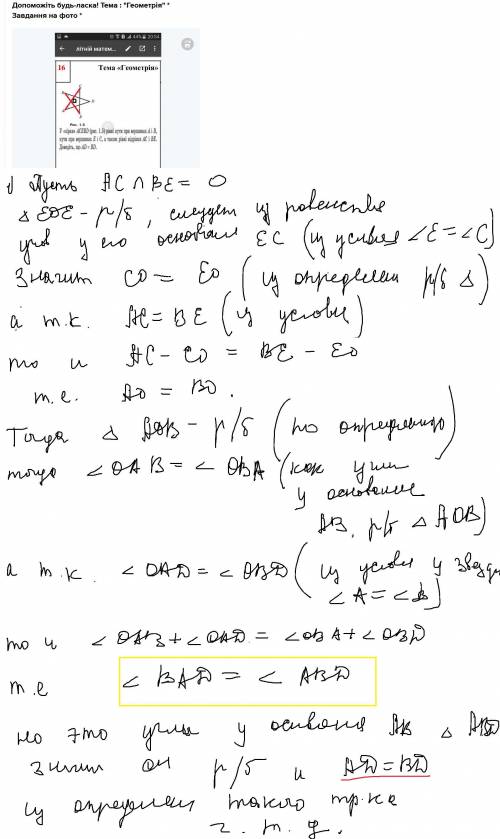 Допоможіть будь-ласка! Тема : "Геометрія" *
Завдання на фото *
20:54
літній матем...
16 Тема «Геометрія»
Рис. 1.5
У «зірці» ACEBD (рис. 1.5) рівні кути при вершинах A і B,
кути при вершинах E і C, а також рівні відрізки AC і BE.
Доведіть, що AD = BD.
1) Пусть AC ∩ BE = O
△ EOE - р/б, следует из равенства
углов у его основания EC (из условия ∠E = ∠C)
Значит CO = EO (из определен р/б △)
а т.к. AC = BE (из условия)
то и AC - CO = BE - EO
т.е. AO = BO.
Тогда △ AOB - р/б (по определению)
тогда ∠OAB = ∠OBA (как углы
у основания
AB, р/б △ AOB)
а т.к. ∠OAD = ∠OBD (из условия у звезды
∠A = ∠B)
то и ∠OAB + ∠OAD = ∠OBA + ∠OBD
т.е ∠BAD = ∠ABD
но это углы у основания AB △ ABD
значит он р/б и AD = BD
из определен такого тр-ка
ч. т. д.